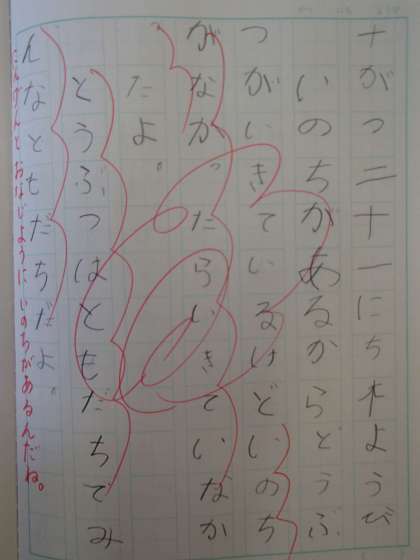 十がつ二十一にち木ようび
いのちがあるからどうぶ
つがいきているけどいのち
がなかったらいきていなか
たよ。
とうぶつはともだちでみ
んなともだちだよ。
にんげんとおなじようにいのちがあるんだね。